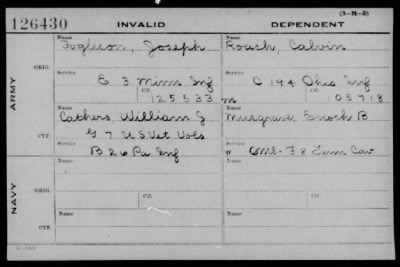 (3-11-3)
126430 INVALID DEPENDENT
Name Name
Fogleson, Joseph Roach, Calvin
ORIG.
Service Service
E 3 Minn Inf C 194 Ohio Inf
Ctf. Ctf.
125533 m 105718
ARMY
Name Name
Cathers, William J Musgrave, Enoch B
Service Service
G 7 U.S. Vet Vols
CTF.
B 26 Pa Inf F 8 Tenn Cav
Name Name
ORIG.
Service Service
Ctf. Ctf.
NAVY
Name Name
CTF.
Service Service